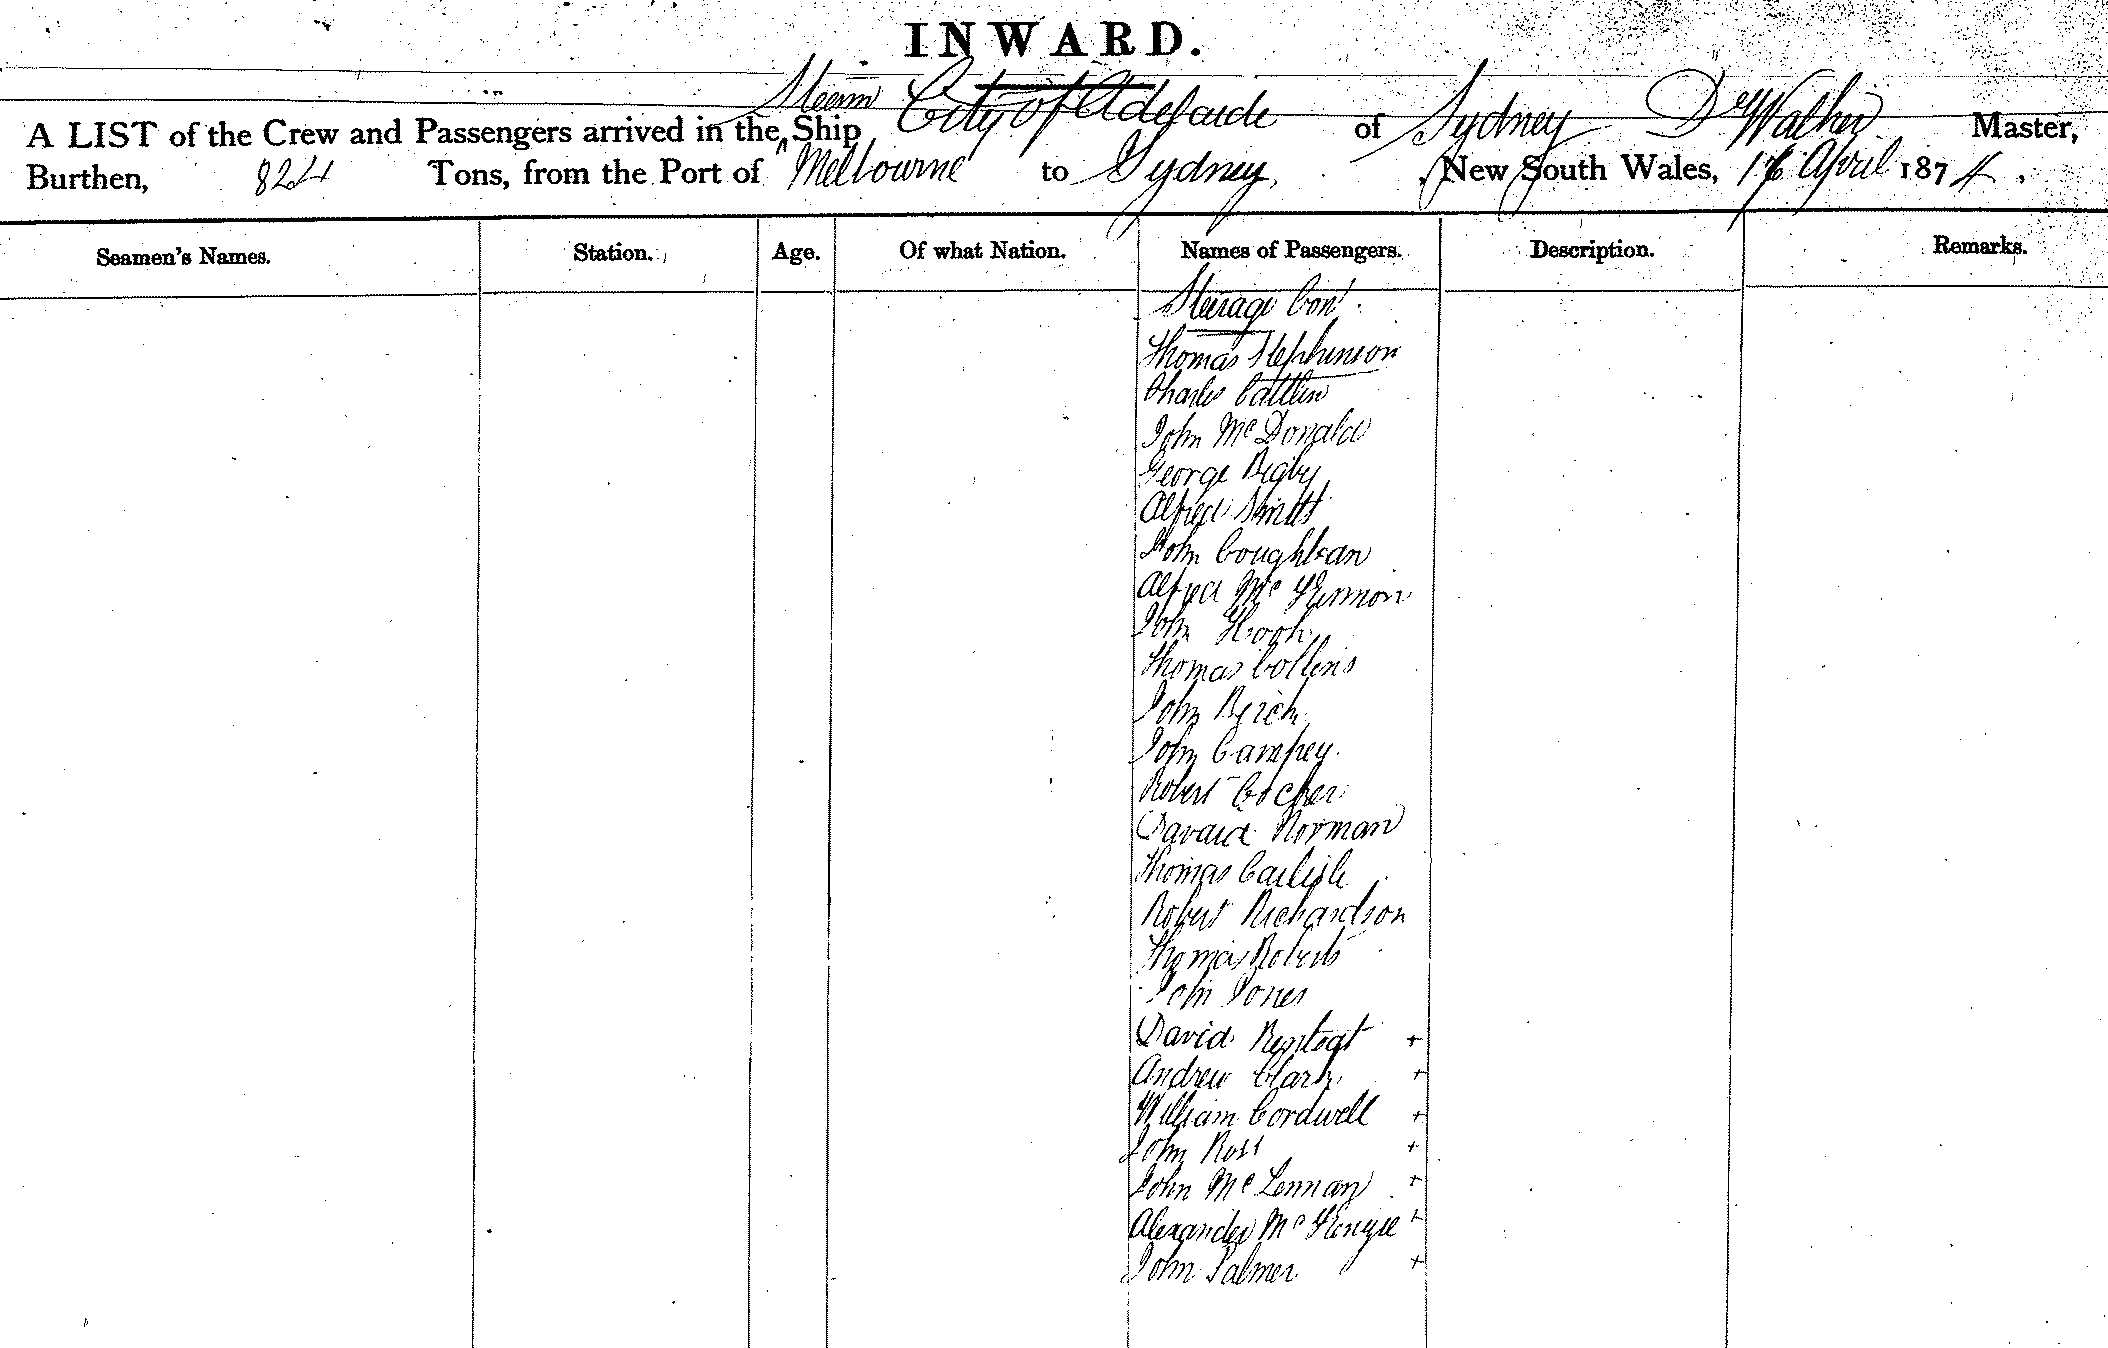 INWARD.
A LIST of the Crew and Passengers arrived in the ^ Steam Ship City of Adelaide of Sydney Walker Master,
Burthen, 824 Tons, from the Port of Melbourne to Sydney, New South Wales, 16 April 1874.
Seamen's Names. Station. Age. Of what Nation. Names of Passengers. Description. Remarks.
Steerage Cont
Thomas Stephenson
Charles Cattlin
John McDonald
George Bigby
Alfred Smith
John Coughlan
Alfred Mc
John Hook
Thomas Collins
John Birch
John Campey
Robert
Davaid Norman
Thomas Carlisle
Robert Richardson
Thomas Roberts
John Jones
David +
Andrew Clark +
William Cordwell +
John Ross +
John McLennan +
Alexander McKenzie +
John Palmer +